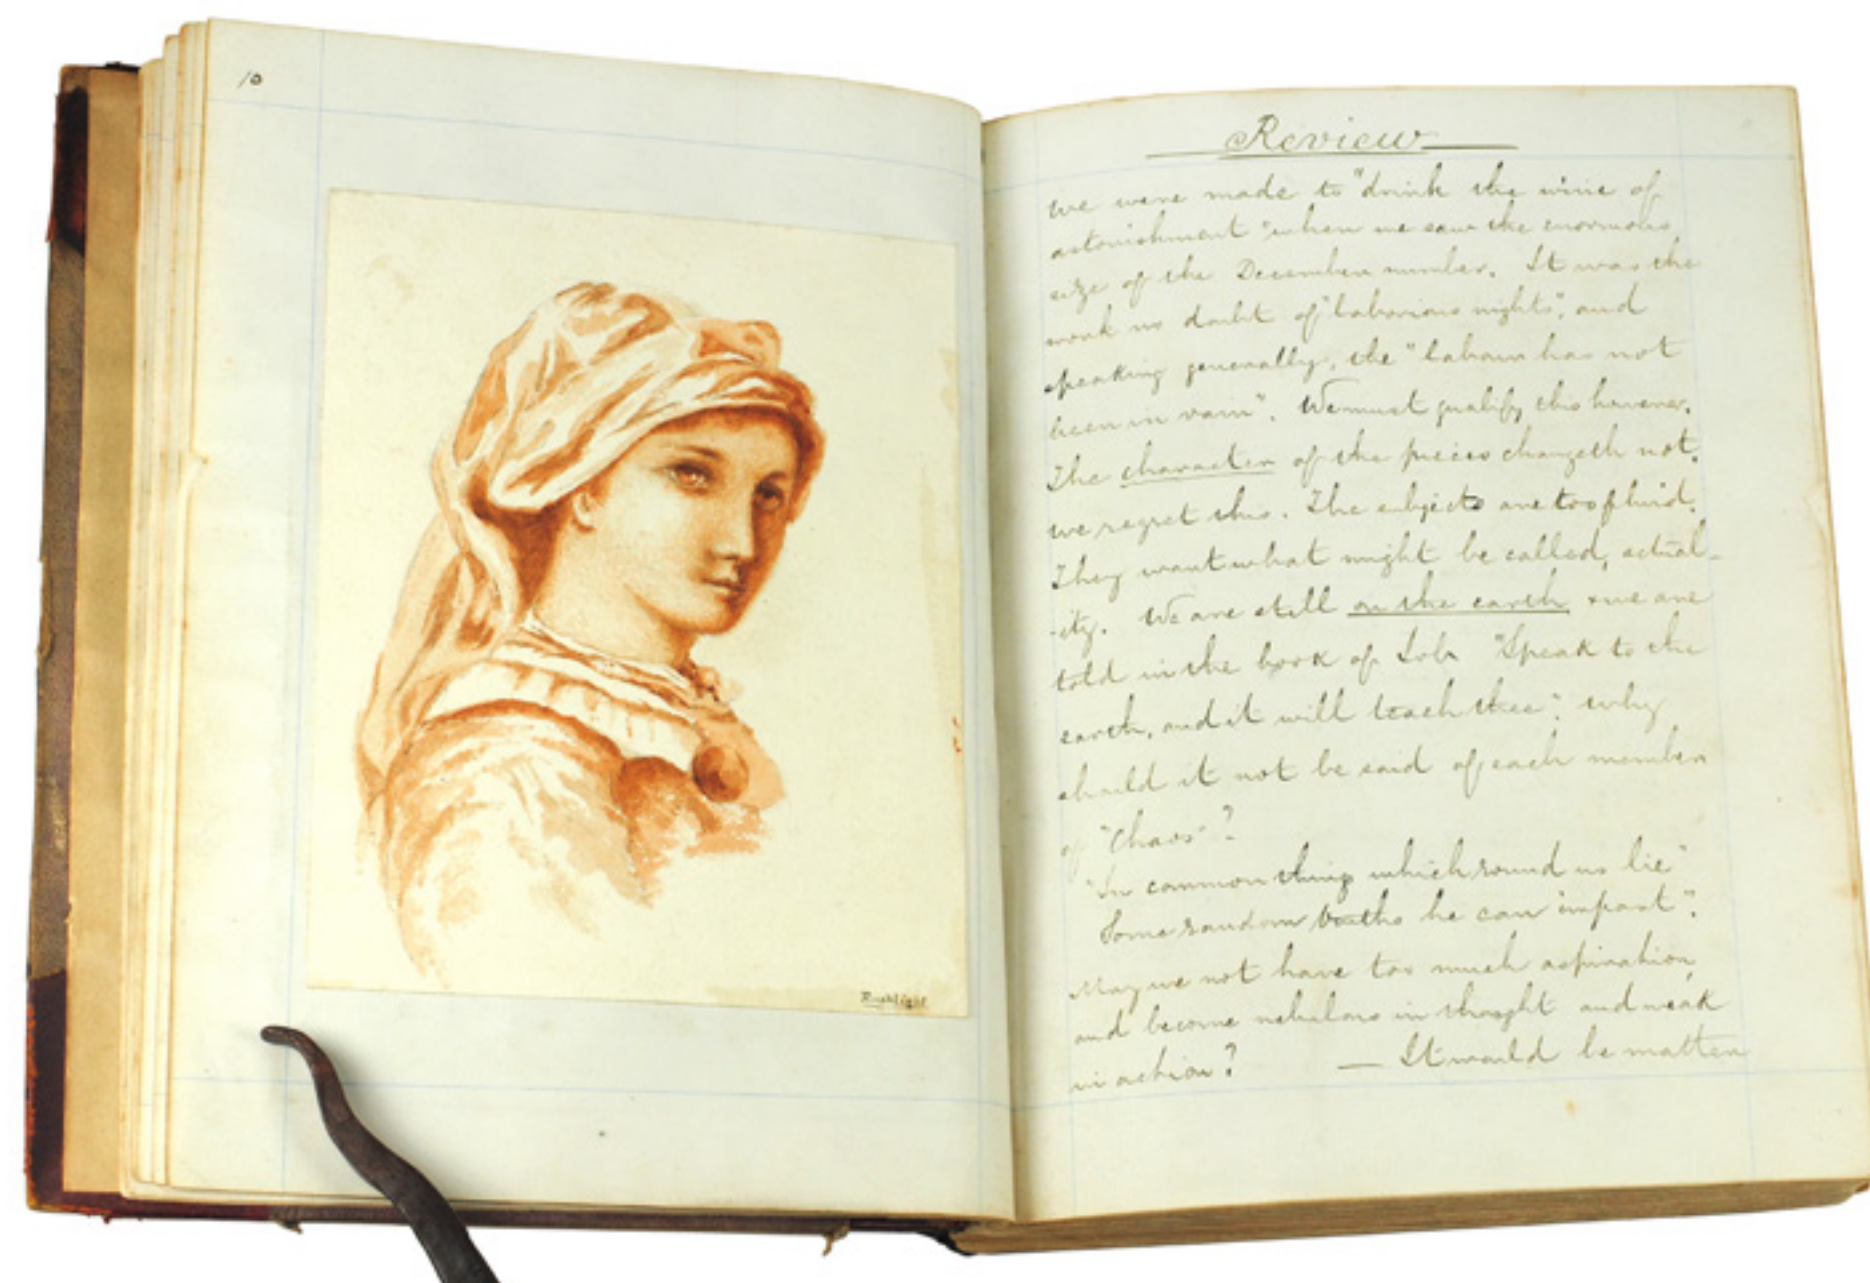 10
Rushlight
Review
we were made to "drink the wine of
astonishment" when we saw the enormous
size of the December number. It was the
work no doubt of "laborious nights", and
speaking generally, the "labour has not
been in vain". We must qualify this however.
The character of the pieces changeth not.
we regret this. The subjects are too fluid.
They want what might be called, actual-
-ity. We are still on the earth & we are
told in the book of Job "Speak to the
earth, and it will teach thee": why
should it not be said of each member
of "Chaos"?
"In common things which round us lie"
Some random truths he can impart".
May we not have too much aspiration,
and become nebulous in thought and weak
in action? — It would be matter